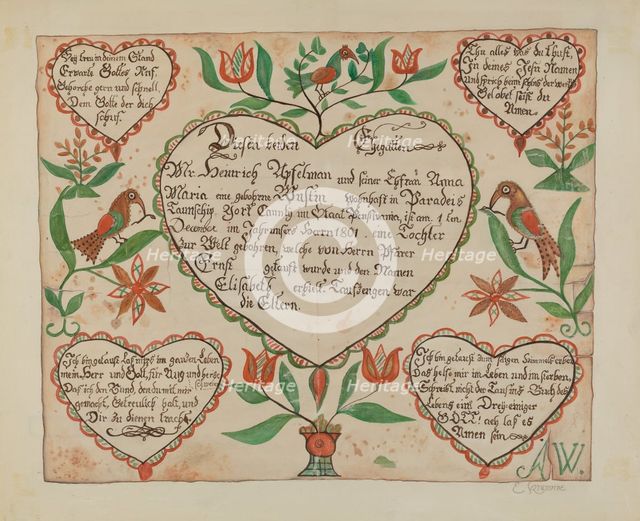 Sey treu in deinem Stand
Erwarte Gottes Ruf.
Gehorche gern und schnell
Dem Gotte der dich
schuf.
Thu alles was du thust,
In deines Jesu Namen
Und sprich beim schlus der
Gelobet seist du
Amen.
Diesen beiden Ehgatten
Mr. Henrich Apfelman und seiner Ehfrau Anna
Maria eine gebohrne wohnhaft in Paradeis
Taunschip York Caunty im Staat Pensilvania, ist am 1 ten
December im Jahr unsers Herrn 1801 eine Tochter
zur Welt gebohren, welche von Herrn Pfarer
Ernst getauft wurde und den Namen
Elisabeth erhielt. Taufzeugen war
die Eltern.
Ich bin getauft Las mich im ganzen Leben
mein Herr und Gott, für Aug und herz
schweben
Das ich den Bund, den du mit mir
gemacht, Getreulich halt, und
Dir zu dienen tracht
Ich bin getauft zum selgen himmels erben
Das helfe mir im Leben und im sterben,
Schreibt nicht der Taufling Buch des
Lebens ein? Dreyeiniger
GOTT ach laß es
Amen sein
AW.
Heritage
Heritage
Heritage
Heritage
Heritage
Heritage
Heritage
Heritage
C